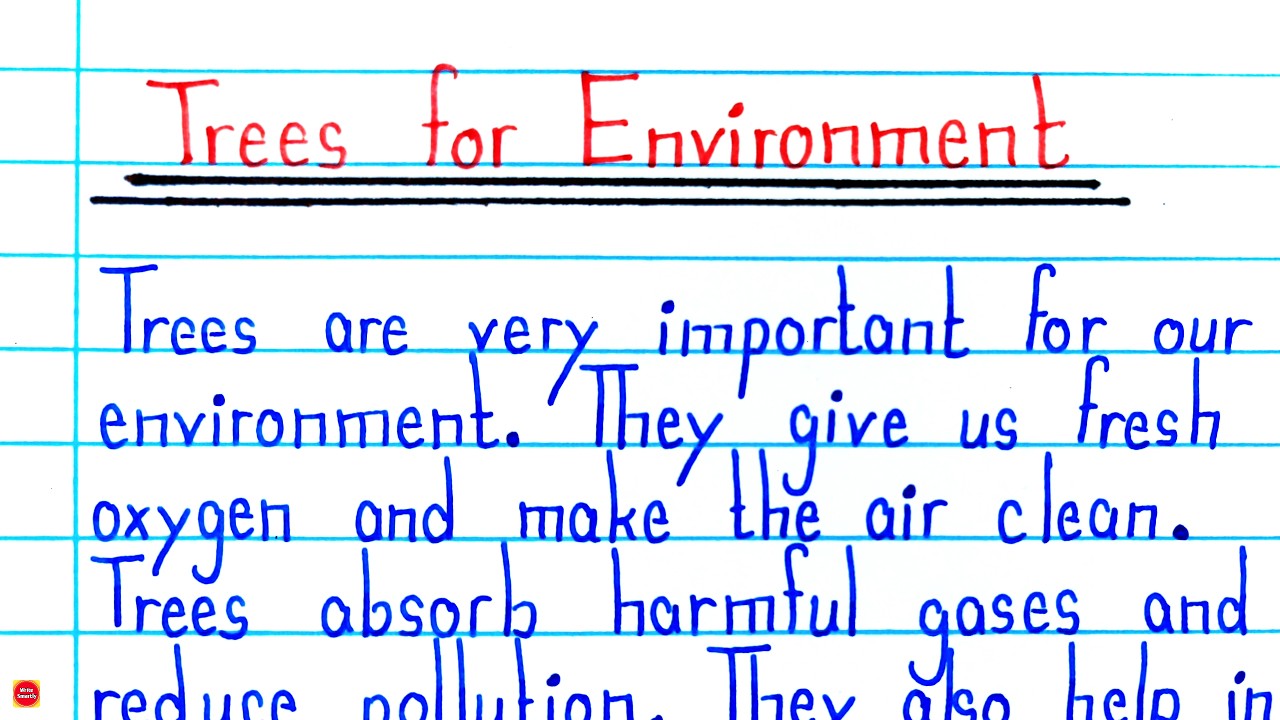 Trees for Environment
Trees are very important for our
environment. They give us fresh
oxygen and make the air clean.
Trees absorb harmful gases and
reduce pollution. They also help in
Write
Smartly